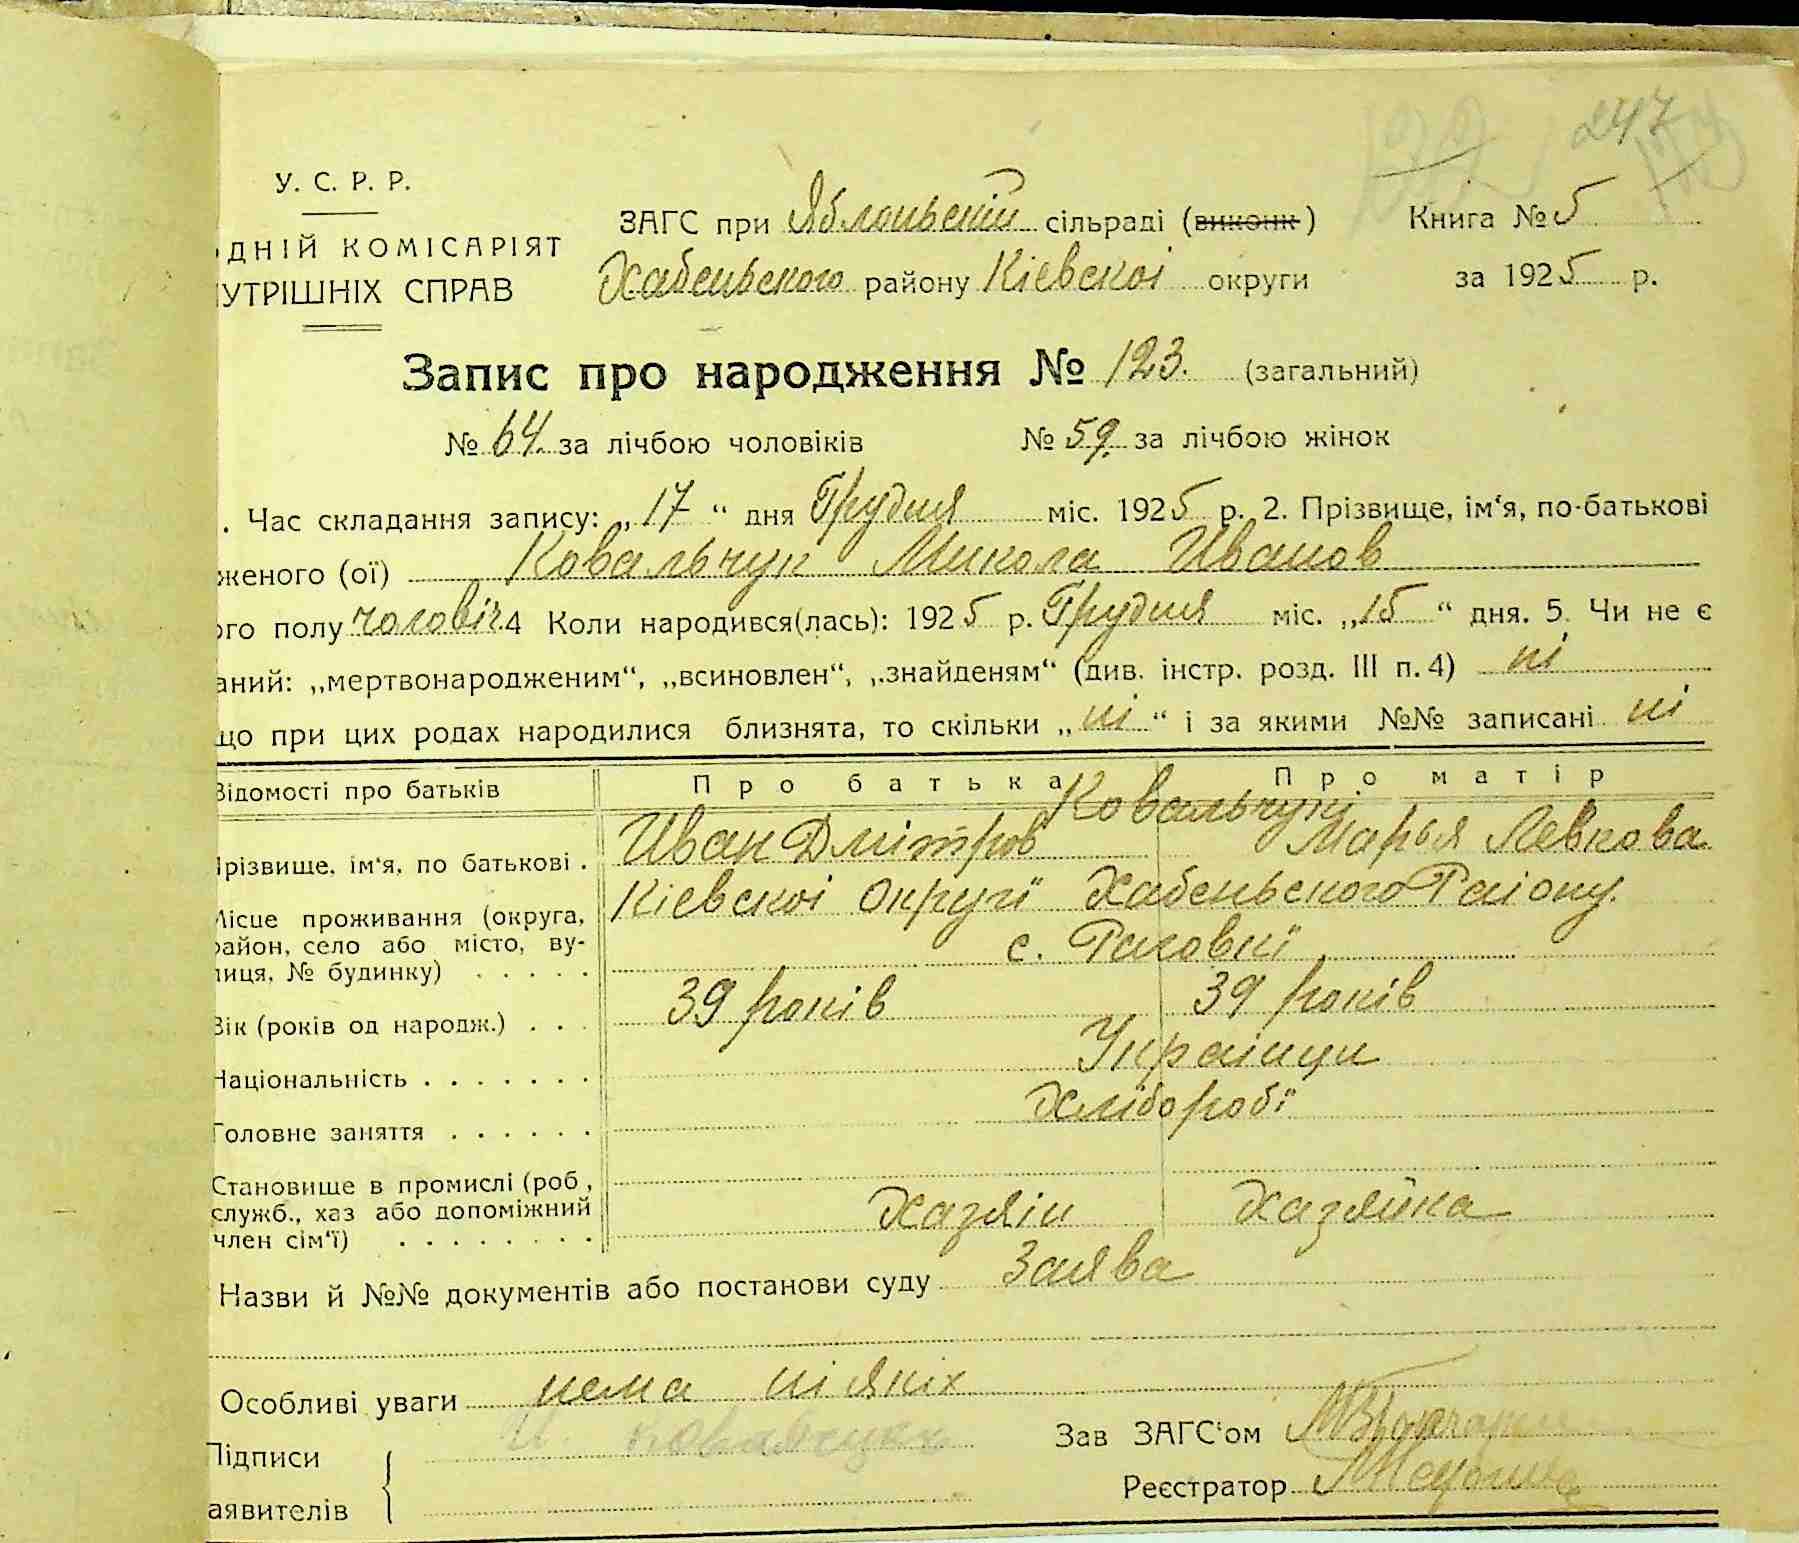 247
У. С. Р. Р.
ЗАГС при Яблоньскій сільраді (виконк) Книга № 5
ОДНІЙ КОМІСАРІЯТ
Хабеньского району Кіевскоі округи за 1925 р.
УТРІШНІХ СПРАВ
Запис про народження № 123. (загальний)
№ 64. за лічбою чоловіків № 59. за лічбою жінок
. Час складання запису: „17“ дня Грудня міс. 1925 р. 2. Прізвище, ім‘я, по-батькові
женого (ої) Ковальчук Микола Иванов
ого полу чоловіч. 4 Коли народився(лась): 1925 р. Грудня міс. „15“ дня. 5. Чи не є
аний: „мертвонародженим“, „всиновлен“, „знайденям“ (див. інстр. розд. III п. 4) ні
що при цих родах народилися близнята, то скільки „ні“ і за якими №№ записані ні
Відомості про батьків Про батька Про матір
Ковальчуки
Прізвище, ім‘я, по батькові . Иван Дмітров Марья Левкова
Місце проживання (округа, Кіевскоі Округї Хабеньского Раіону.
район, село або місто, ву-
лиця, № будинку) . . . . . с. Раговкї
Вік (років од народж.) . . . 39 років 39 років
Національність . . . . . . . Украінци
Головне заняття . . . . . . Хлїборобї
Становище в промислі (роб,
служб., хаз або допоміжний Хазяін Хазяйка
член сім‘ї) . . . . . . . .
Назви й №№ документів або постанови суду Заява
Особливі уваги нема ніякіх
Підписи И. Ковальчук Зав ЗАГС‘ом
аявителів Реєстратор